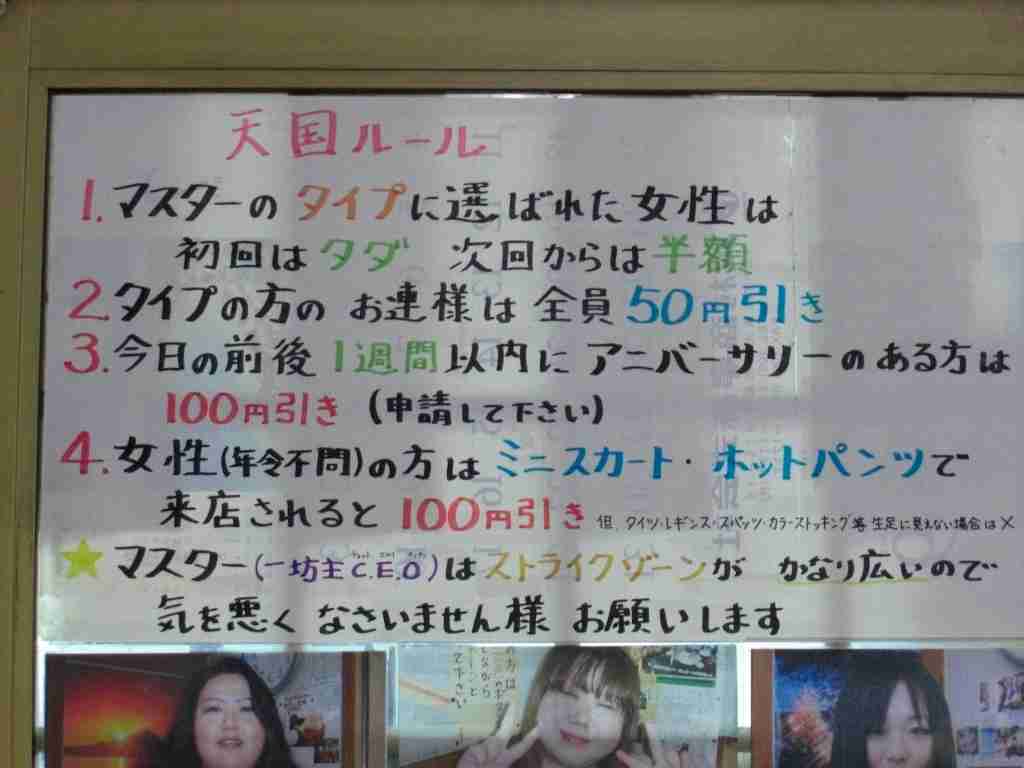 天国ルール
1.マスターのタイプに選ばれた女性は
初回はタダ 次回からは半額
2.タイプの方の お連様は 全員50円引き
3.今日の前後1週間以内に アニバーサリーのある方は
100円引き (申請して下さい)
4.女性(年令不問)の方は ミニスカート・ホットパンツで
来店されると 100円引き 但、タイツ・レギンス・スパッツ・カラーストッキング等 生足に見えない場合は×
★マスター(一坊主C.E.O)はストライクゾーンが かなり広いので
気を悪く なさいません様 お願いします